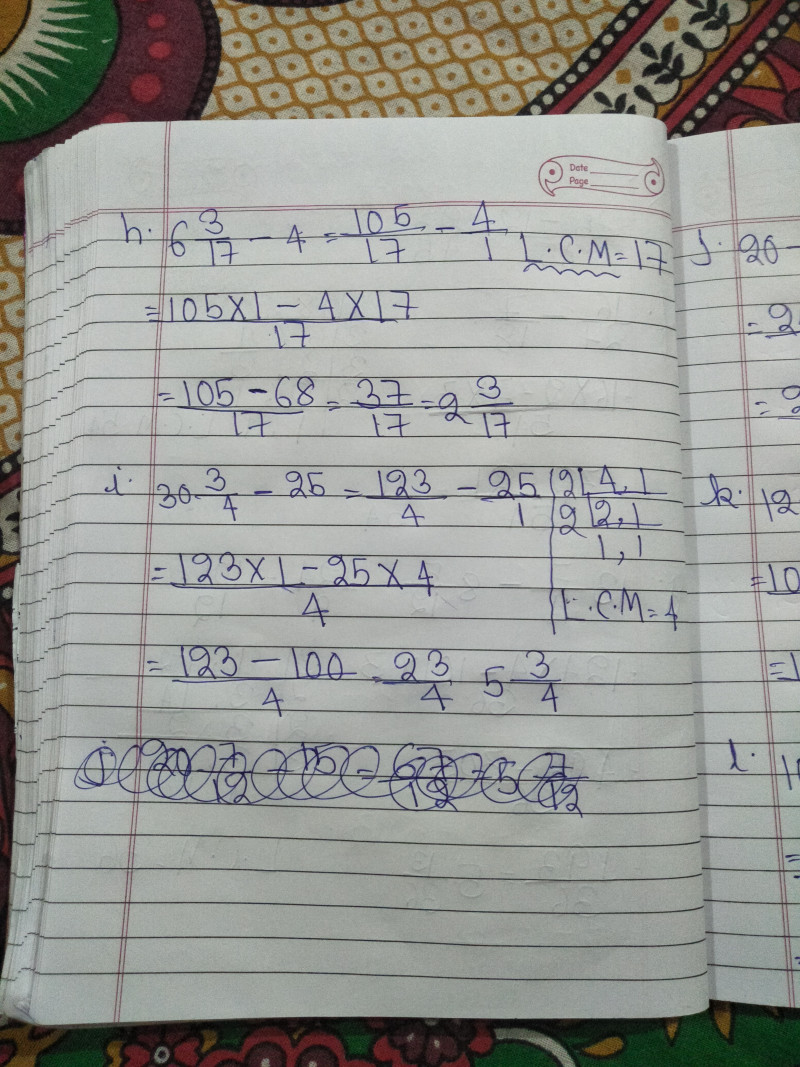 Date
Page
h. 6 3/17 - 4 = 105/17 - 4/1 L.C.M = 17
= 105×1 - 4×17/17
= 105-68/17 = 37/17 = 2 3/17
i. 30 3/4 - 25 = 123/4 - 25/1
2 4,1
2 2,1
1,1
L.C.M = 4
= 123×1 - 25×4/4
= 123-100/4 = 23/4 5 3/4
j. 20 -
= 2
= 2
k. 12
= 10
= 1
l. 1
=